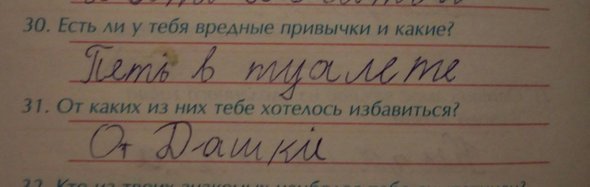 30. Есть ли у тебя вредные привычки и какие?
Петь в туалете
31. От каких из них тебе хотелось избавиться?
От Дашки